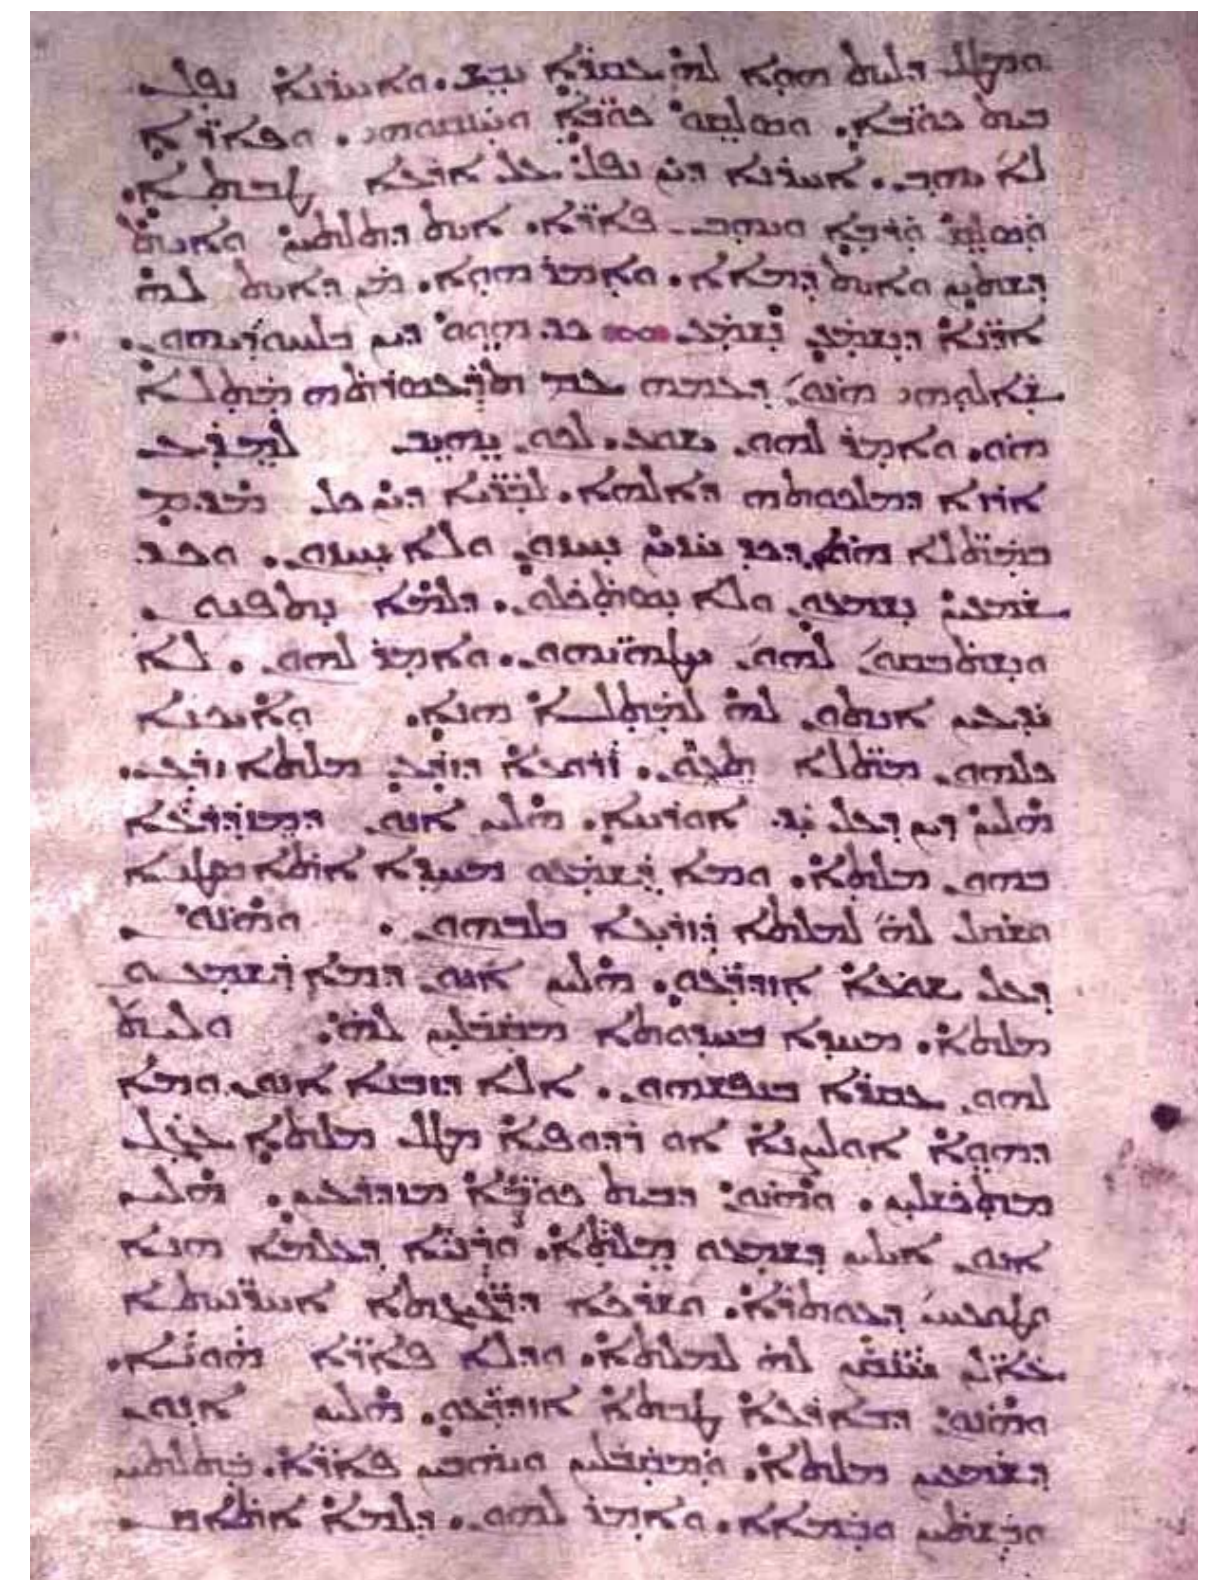 ܘܡܛܠ ܕܠܝܬ ܗܘܐ ܠܗ ܥܩܪܐ ܝܒܫ. ܘܐܚܪܢܐ ܢܦܠ
ܒܝܬ ܟܘܒܐ. ܘܣܠܩܘ ܟܘܒܐ ܘܚܢܩܘܗܝ. ܘܦܐܪܐ
ܠܐ ܝܗܒ. ܐܚܪܢܐ ܕܝܢ ܢܦܠ ܥܠ ܐܪܥܐ ܛܒܬܐ.
ܘܣܠܩ ܘܪܒܐ ܘܝܗܒ ܦܐܪܐ. ܐܝܬ ܕܬܠܬܝܢ ܘܐܝܬ
ܕܫܬܝܢ ܘܐܝܬ ܕܡܐܐ. ܘܐܡܪ ܗܘܐ. ܡܢ ܕܐܝܬ ܠܗ
ܐܕܢܐ ܕܢܫܡܥ ܢܫܡܥ. ܟܕ ܗܘܘ ܕܝܢ ܒܠܚܘܕܝܗܘܢ.
ܫܐܠܘܗܝ ܗܢܘܢ ܕܥܡܗ ܥܡ ܬܪܥܣܪܬܗ ܡܬܠܐ
ܗܘ. ܘܐܡܪ ܠܗܘܢ ܝܫܘܥ. ܠܟܘܢ ܝܗܝܒ ܠܡܕܥ
ܐܪܙܐ ܕܡܠܟܘܬܗ ܕܐܠܗܐ. ܠܒܪܝܐ ܕܝܢ ܟܠ ܡܕܡ
ܒܡܬܠܐ ܗܘܐ ܕܟܕ ܚܙܝܢ ܢܚܙܘܢ ܘܠܐ ܢܚܙܘܢ. ܘܟܕ
ܫܡܥܝܢ ܢܫܡܥܘܢ ܘܠܐ ܢܣܬܟܠܘܢ. ܕܠܡܐ ܢܬܦܢܘܢ.
ܘܢܫܬܒܩܘܢ ܠܗܘܢ ܚܛܗܝܗܘܢ. ܘܐܡܪ ܠܗܘܢ. ܠܐ
ܝܕܥܝܢ ܐܢܬܘܢ ܠܗ ܠܡܬܠܐ ܗܢܐ. ܘܐܝܟܢܐ
ܟܠܗܘܢ ܡܬܠܐ ܬܕܥܘܢ. ܙܪܘܥܐ ܕܙܪܥ ܡܠܬܐ ܙܪܥ.
ܗܠܝܢ ܕܝܢ ܕܥܠ ܝܕ ܐܘܪܚܐ. ܗܠܝܢ ܐܢܘܢ ܕܡܙܕܪܥܐ
ܒܗܘܢ ܡܠܬܐ. ܘܡܐ ܕܫܡܥܘ ܡܚܕܐ ܐܬܐ ܣܛܢܐ
ܘܫܩܠ ܠܗ ܠܡܠܬܐ ܕܙܪܝܥܐ ܒܠܒܗܘܢ. ܘܗܢܘܢ
ܕܥܠ ܫܘܥܐ ܐܙܕܪܥܘ. ܗܠܝܢ ܐܢܘܢ ܕܡܐ ܕܫܡܥܘ
ܡܠܬܐ. ܡܚܕܐ ܒܚܕܘܬܐ ܡܩܒܠܝܢ ܠܗ. ܘܠܝܬ
ܠܗܘܢ ܥܩܪܐ ܒܢܦܫܗܘܢ. ܐܠܐ ܕܙܒܢܐ ܐܢܘܢ. ܘܡܐ
ܕܗܘܐ ܐܘܠܨܢܐ ܐܘ ܪܕܘܦܝܐ ܡܛܠ ܡܠܬܐ ܥܓܠ
ܡܬܟܫܠܝܢ. ܘܗܢܘܢ ܕܒܝܬ ܟܘܒܐ ܡܙܕܪܥܝܢ. ܗܠܝܢ
ܐܢܘܢ ܐܝܠܝܢ ܕܫܡܥܘ ܡܠܬܐ. ܘܪܢܝܐ ܕܥܠܡܐ ܗܢܐ
ܘܛܘܥܝܝ ܕܥܘܬܪܐ. ܘܫܪܟܐ ܕܪܓܝܓܬܐ ܐܚܪܢܝܬܐ
ܥܐܠܢ ܚܢܩܢ ܠܗ ܠܡܠܬܐ. ܘܕܠܐ ܦܐܪܐ ܗܘܝܐ.
ܘܗܢܘܢ ܕܒܐܪܥܐ ܛܒܬܐ ܐܙܕܪܥܘ. ܗܠܝܢ ܐܢܘܢ
ܕܫܡܥܝܢ ܡܠܬܐ. ܘܡܩܒܠܝܢ ܘܝܗܒܝܢ ܦܐܪܐ. ܒܬܠܬܝܢ
ܘܒܫܬܝܢ ܘܒܡܐܐ. ܘܐܡܪ ܠܗܘܢ. ܕܠܡܐ ܐܬܐ